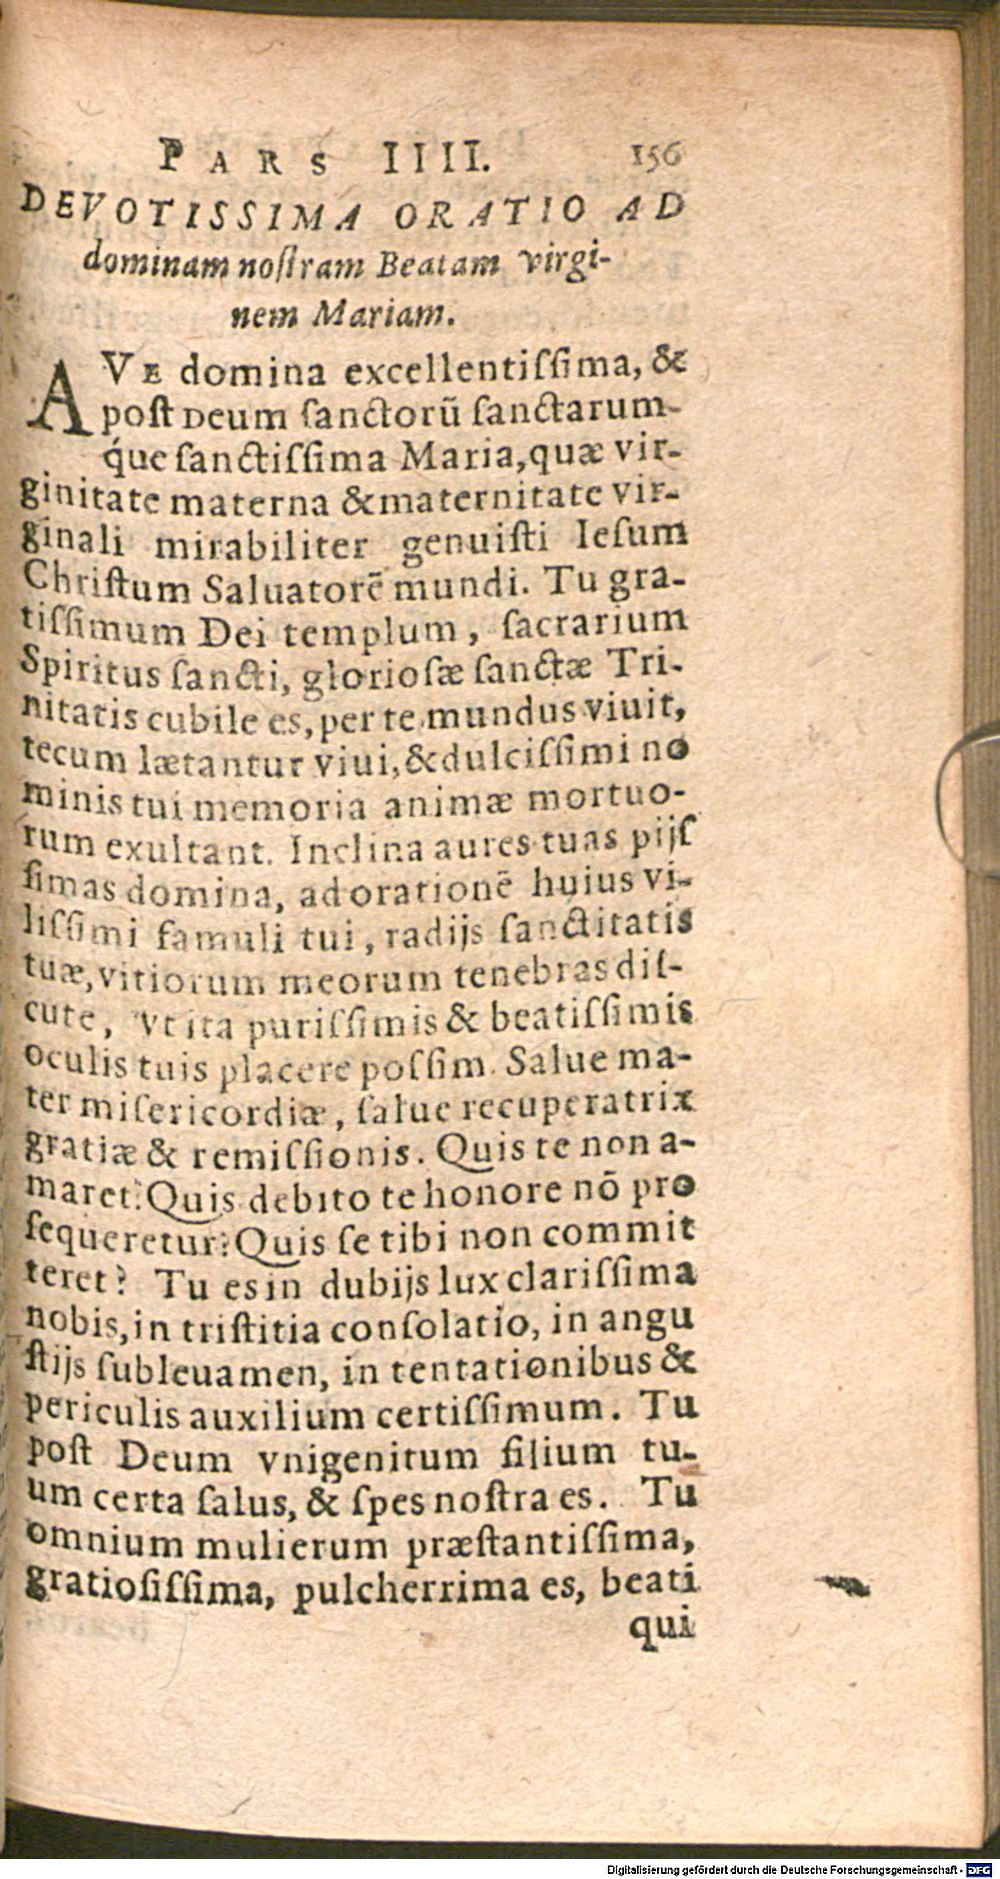 PARS IIII. 156
DEVOTISSIMA ORATIO AD
dominam noſtram Beatam virgi-
nem Mariam.
AVE domina excellentiſſima, &
poſt Deum ſanctorũ ſanctarum-
q́ue ſanctiſſima Maria, quæ vir-
ginitate materna & maternitate vir-
ginali mirabiliter genuiſti Ieſum
Chriſtum Saluatorẽ mundi. Tu gra-
tiſſimum Dei templum, ſacrarium
Spiritus ſancti, glorioſæ ſanctæ Tri-
nitatis cubile es, per te mundus viuit,
tecum lætantur viui, & dulciſſimi no
minis tui memoria animæ mortuo-
rum exultant. Inclina aures tuas pijſ
ſimas domina, ad orationẽ huius vi-
liſſimi famuli tui, radijs ſanctitatis
tuæ, vitiorum meorum tenebras diſ-
cute, vt ita puriſſimis & beatiſſimis
oculis tuis placere poſſim. Salue ma-
ter miſericordiæ, ſalue recuperatrix
gratiæ & remiſſionis. Quis te non a-
maret? Quis debito te honore nõ pro
ſequeretur? Quis ſe tibi non commit
teret? Tu es in dubijs lux clariſſima
nobis, in triſtitia conſolatio, in angu
ſtijs ſubleuamen, in tentationibus &
periculis auxilium certiſſimum. Tu
poſt Deum vnigenitum filium tu-
um certa ſalus, & ſpes noſtra es. Tu
omnium mulierum præſtantiſſima,
gratioſiſſima, pulcherrima es, beati
qui
Digitalisierung gefördert durch die Deutsche Forschungsgemeinschaft - DFG